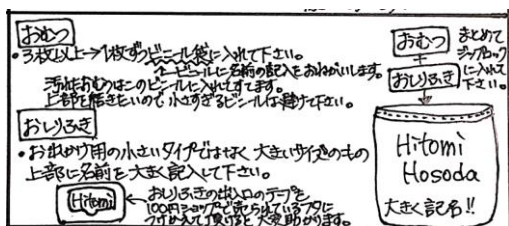 おむつ
・3枚以上→1枚ずつビニール袋に入れて下さい。
←ビニールに名前の記入をおねがいします。
汚れたおむつはこのビニールに入れてすてます。
上部を結びたいので小さすぎるビニールは避けて下さい。
おしりふき
・お出かけ用の小さいタイプではなく大きいサイズのもの
上部に名前を大きく記入して下さい。
Hitomi
←おしりふきの出入口のテープを
100円ショップで売られているフタに
つけかえて頂けると大変助かります。
おむつ
+
おしりふき
まとめて
ジップロック
に入れて
下さい。
Hitomi
Hosoda
大きく記名!!